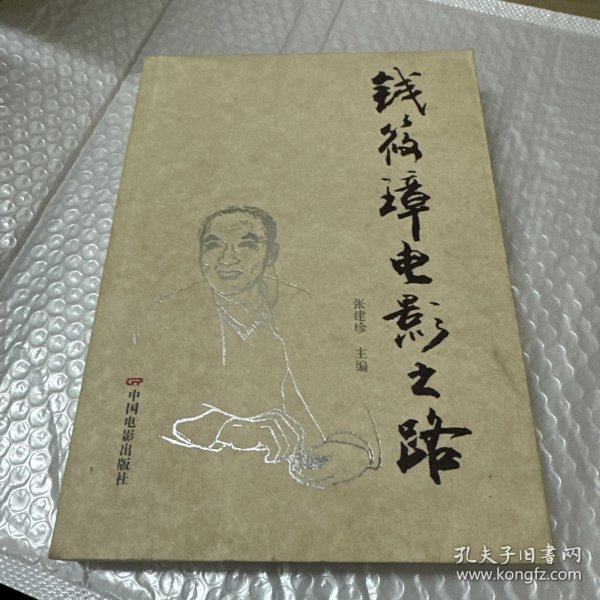 钱筱璋电影之路
张建珍 主编
中国电影出版社
孔夫子旧书网
www.kongfz.com